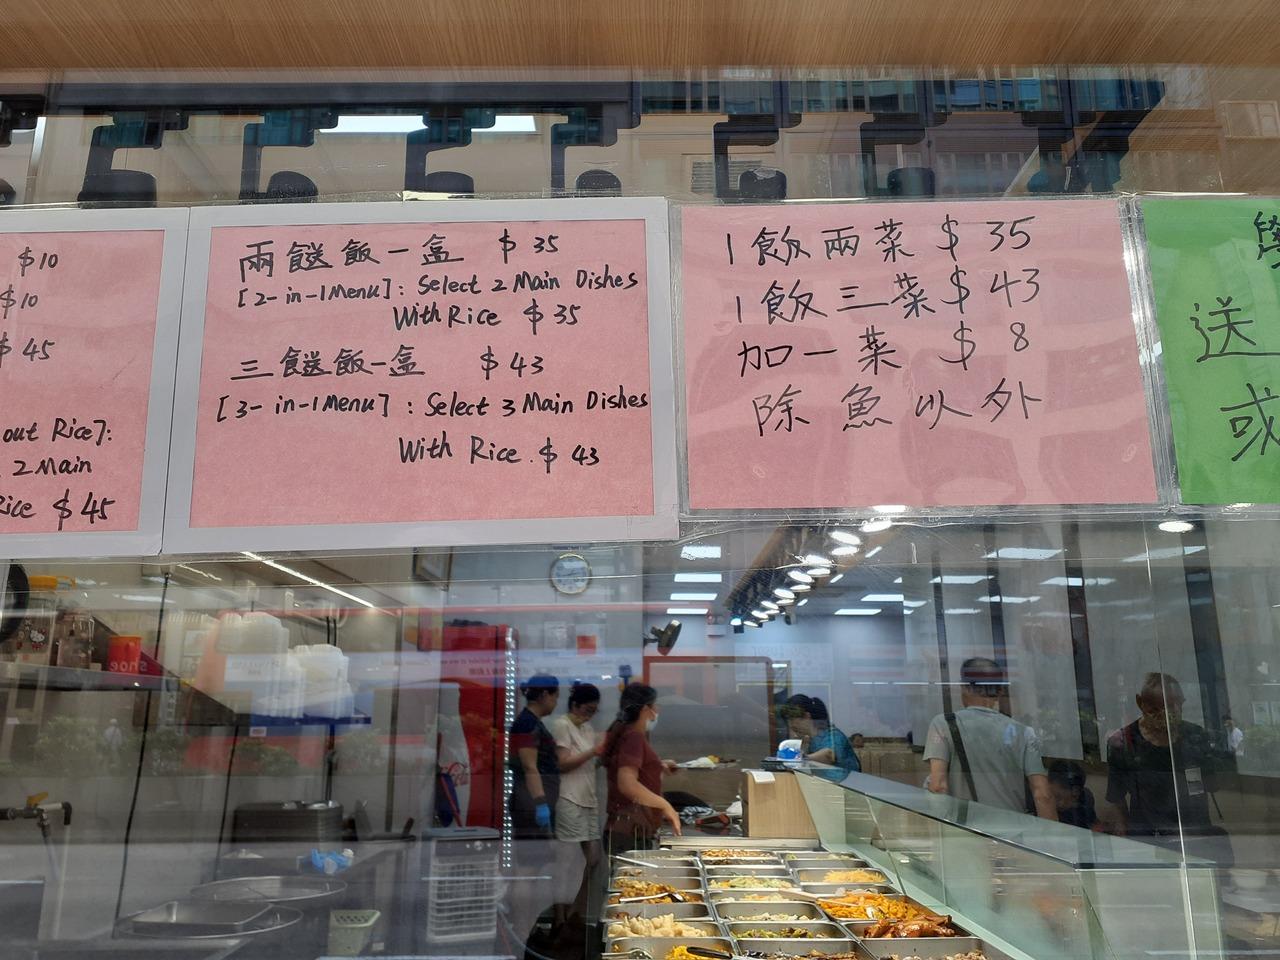 $10
$10
$45
out Rice]:
2 Main
Rice $45
兩餸飯一盒 $35
[2-in-1 Menu]: Select 2 Main Dishes
With Rice $35
三餸飯一盒 $43
[3-in-1 Menu]: Select 3 Main Dishes
With Rice. $43
1飯兩菜 $35
1飯三菜 $43
加一菜 $8
除魚以外
送
或
shoe